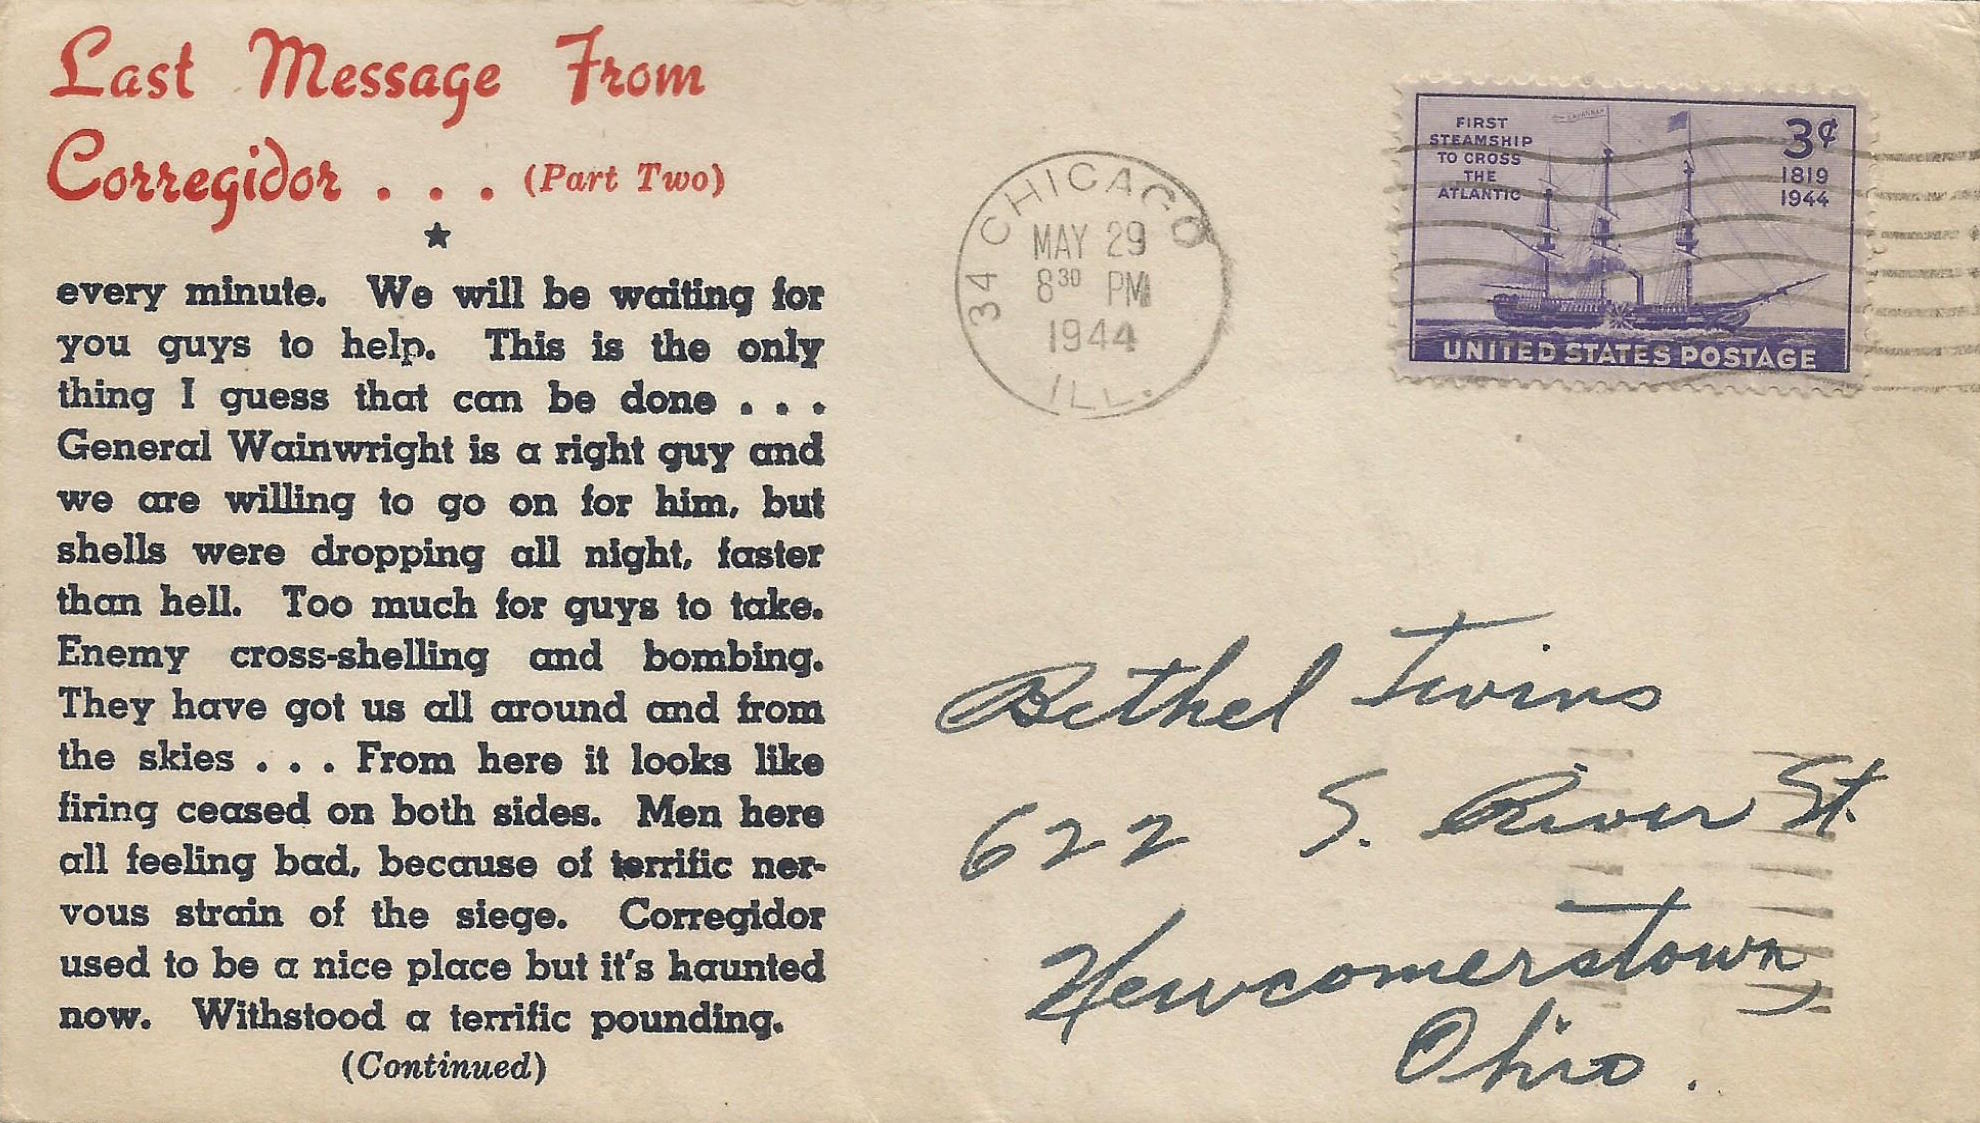 Last Message From
Corregidor . . . (Part Two)
★
every minute. We will be waiting for
you guys to help. This is the only
thing I guess that can be done . . .
General Wainwright is a right guy and
we are willing to go on for him, but
shells were dropping all night, faster
than hell. Too much for guys to take.
Enemy cross-shelling and bombing.
They have got us all around and from
the skies . . . From here it looks like
firing ceased on both sides. Men here
all feeling bad, because of terrific ner-
vous strain of the siege. Corregidor
used to be a nice place but it's haunted
now. Withstood a terrific pounding.
(Continued)
34 CHICAGO
MAY 29
8 30 PM
1944
ILL.
SAVANNAH
FIRST
STEAMSHIP
TO CROSS
THE
ATLANTIC
3¢
1819
1944
UNITED STATES POSTAGE
Bethel Twins
622 S. River St.
Newcomerstown,
Ohio.